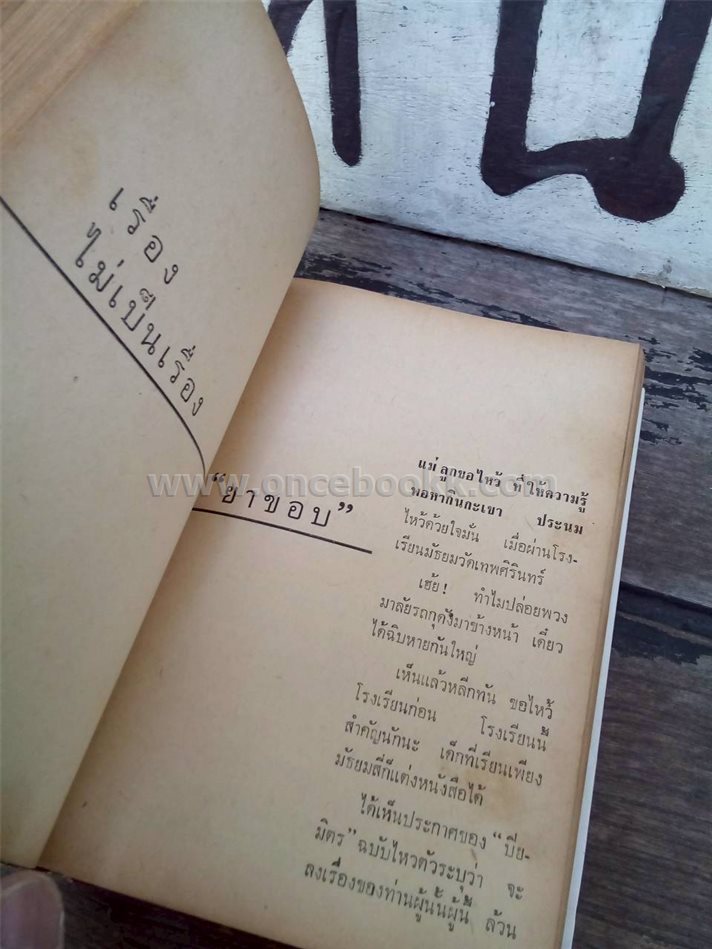 เรื่อง
ไม่เป็นเรื่อง
www.oncebookk.com
“ยาขอบ”
แม่ ลูกขอไหว้ ที่ให้ความรู้
พอหากินกะเขา ประนม
ไหว้ด้วยใจมั่น เมื่อผ่านโรง-
เรียนมัธยมวัดเทพศิรินทร์
เฮ้ย! ทำไมปล่อยพวง
มาลัยรถกุดังมาข้างหน้า เดี๋ยว
ได้ฉิบหายกันใหญ่
เห็นแล้วหลีกทัน ขอไหว้
โรงเรียนก่อน โรงเรียนนี้
สำคัญนักนะ เด็กที่เรียนเพียง
มัธยมสี่ก็แต่งหนังสือได้
ได้เห็นประกาศของ “ปิย-
มิตร” ฉบับไหวตัวระบุว่า จะ
ลงเรื่องของท่านผู้นั้นผู้นี้ ล้วน